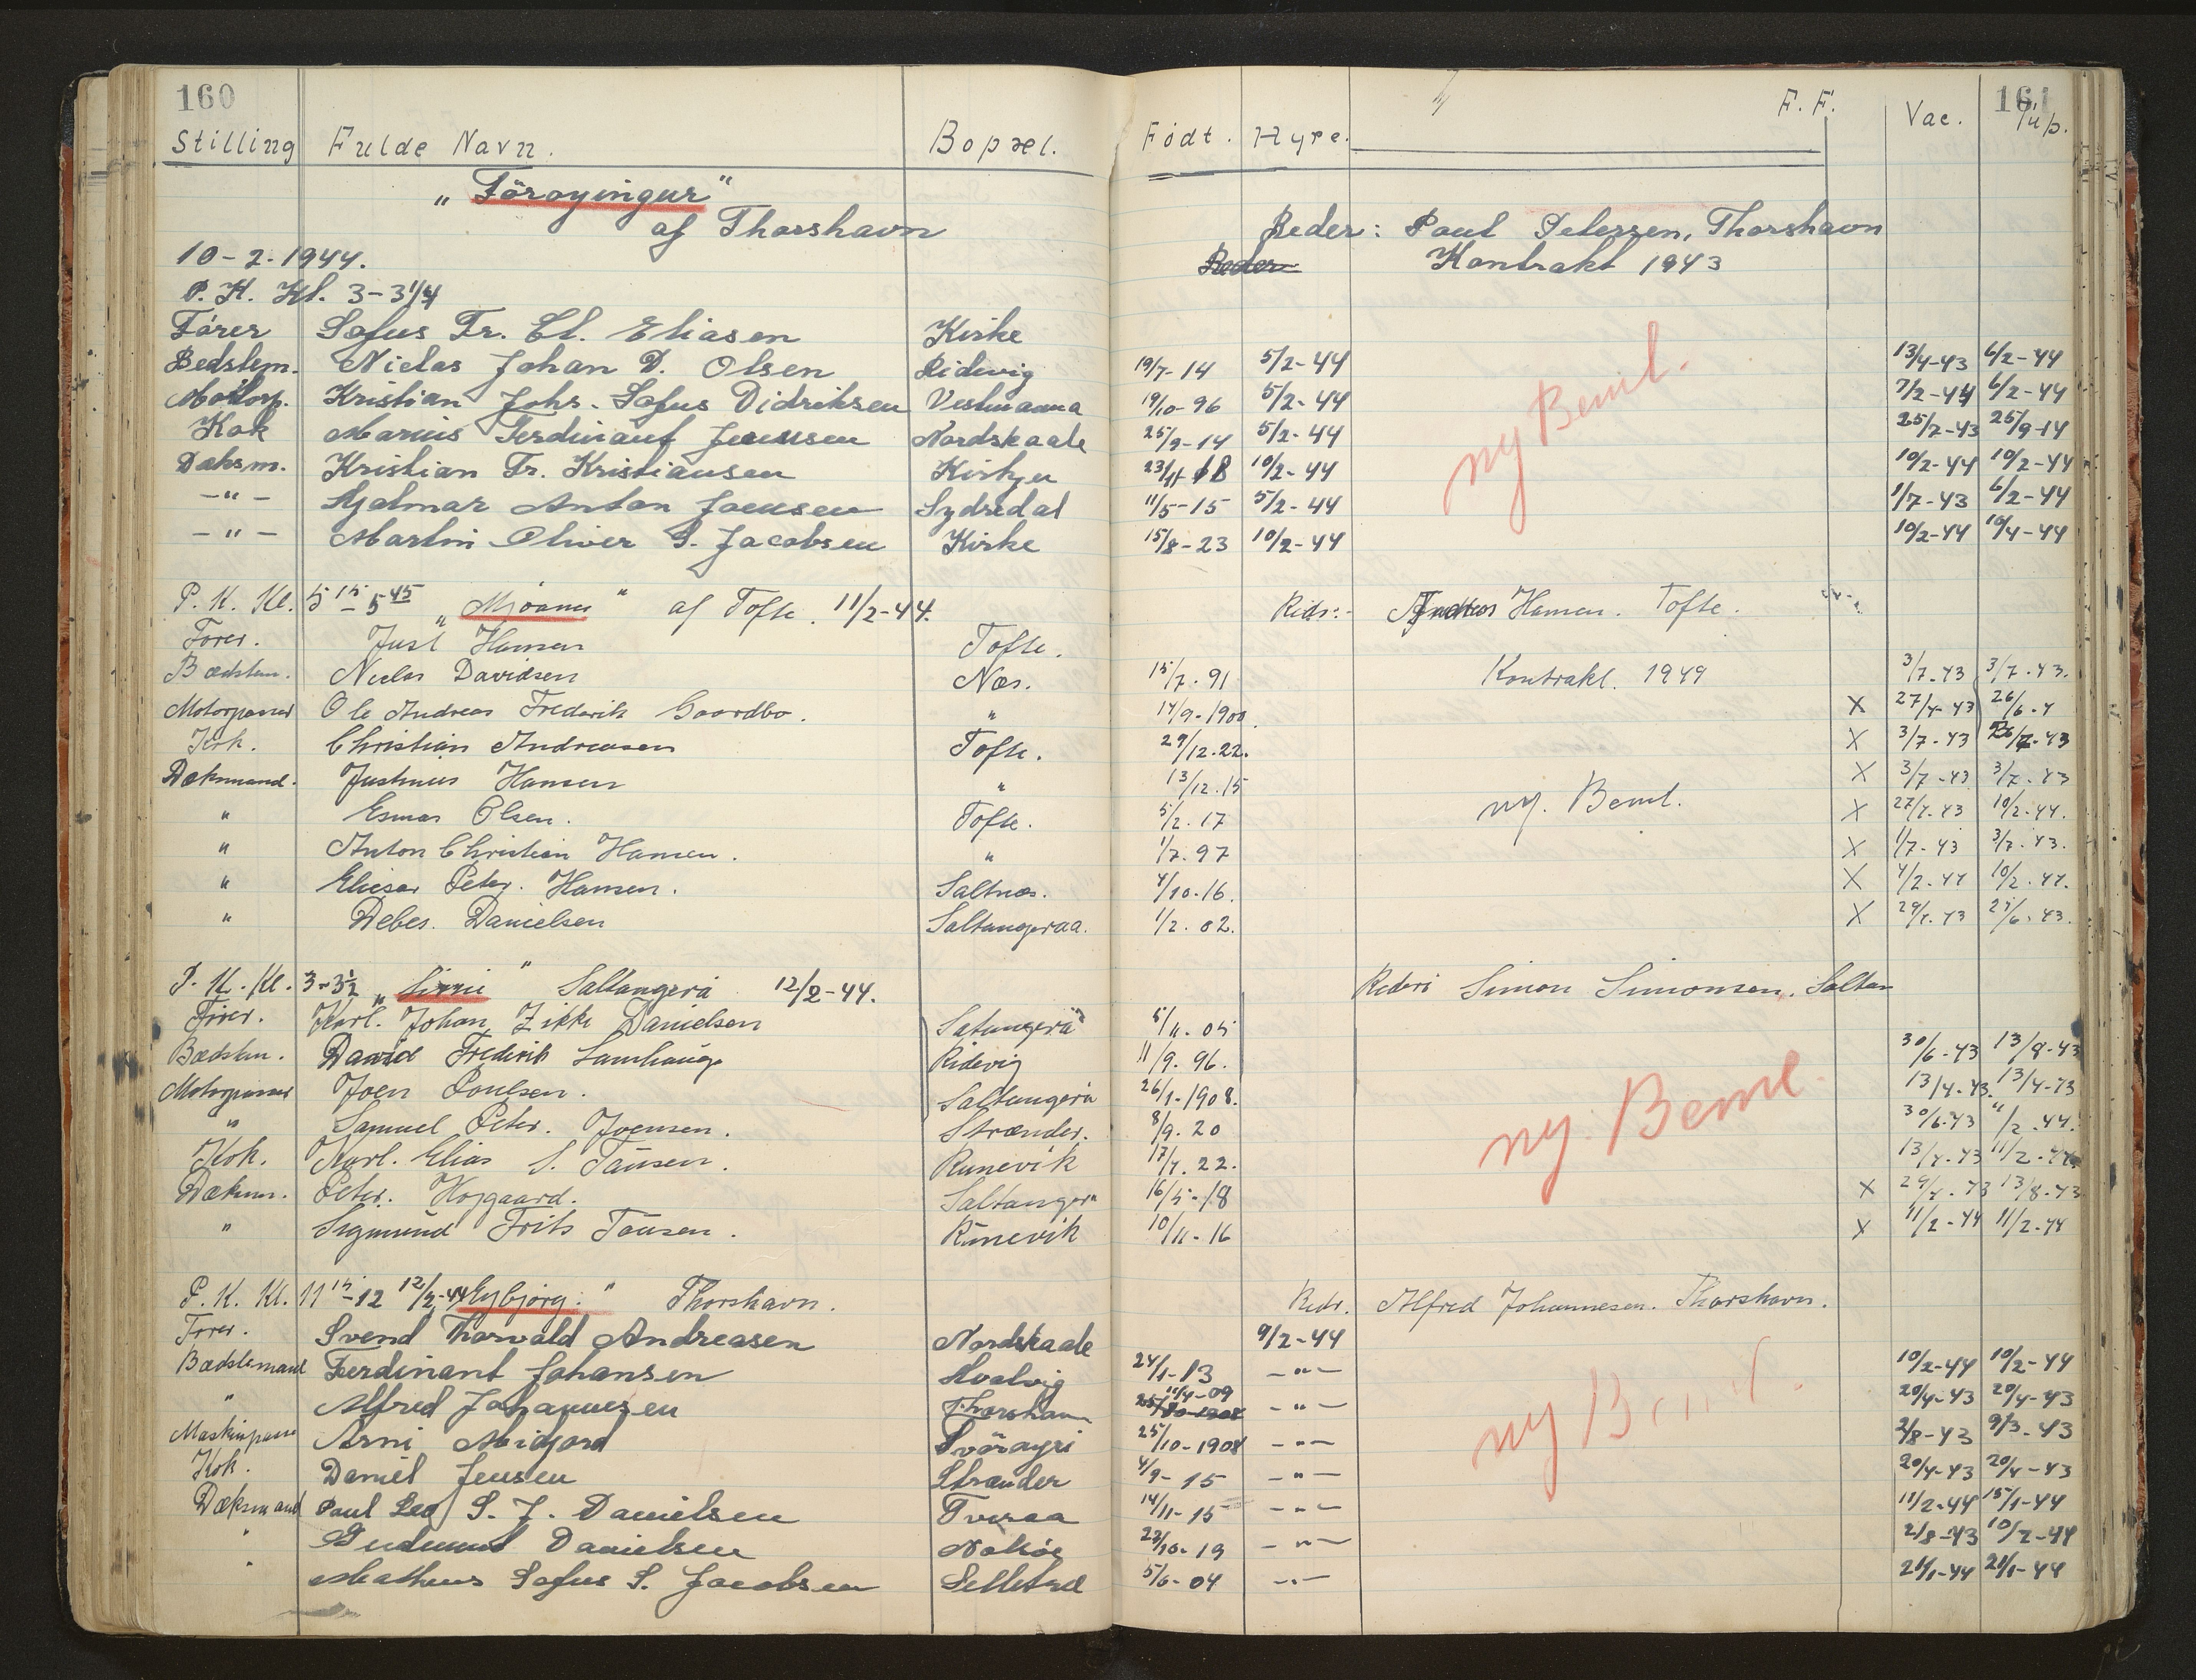 160 161
Stilling Fulde Navn. Bopæl. Født. Hyre. F. F. Vac.
"Föroyingur"
af Thorshavn Reder: Poul Petersen, Thorshavn
10-2-1944. Reder Kontrakt 1943
P. K. Kl. 3-3 1/4
Förer Sofus Fr. El. Eliasen Kirke
Bedstem. Niclas Johan D. Olsen Ridevig 19/7-14 5/2-44 13/4-43 6/2-44
Motorp. Kristian Johs. Sofus Didriksen Vestmanna 19/10-96 5/2-44 7/2-44 6/2-44
Kok Marius Ferdinant Joensen Nordskaale 25/9-14 5/2-44 ny Beml. 25/7-43 25/9-14
Daksm. Kristian Fr. Kristiansen Kirkju 10/2-44 10/2-44 10/2-44
-"- Hjalmar Anton Joensen Sydredal 11/5-15 5/2-44 1/7-43 6/2-44
-"- Martin Oliver S. Jacobsen Kirke 15/8-23 10/2-44 10/2-44 10/4-44
P. K. Kl. 5 15 - 5 45 "Mjóanes" af Tofte. 11/2-44. Reder:- Hansen. Tofte.
Fører. Just Hansen Tofte.
Bædstem. Niclas Davidsen Næs. 15/7.91 Kontrakt. 1949 3/7-43 3/7-43.
Motorpasser Ole Andreas Frederik Gaardbo. " 14/9-1900. X 27/4-43 26/6-4
Kok. Christian Andreasen Tofte. 29/12.22. X 3/7-43
Dæksmand. Justinus Hansen " 13/12.15 X 3/7-43 3/7-43
" Esmar Olsen. Tofte. 5/2.17 ny. Beml. X 27/4-43 10/2-44.
" Anton Christian Hansen. " 1/7.97 X 1/7-43 3/7-43.
" Eliesar Peter. Hansen. Saltnæs. 4/10-16. X 4/2-44 10/2-44.
" Debes. Danielsen Saltangeraa. 1/2.02. X 29/4-43 25/6-43.
P. K. Kl. 3-3½ " Saltangerá 12/2-44. Rederi Simon Simonsen, Saltan
Fører. Karl. Johan. Zikki Danielsen Satangerá 5/11.05
Bædstm. David Frederik Lamhauge Ridevig 11/9.96. 30/6-43 13/8-43
Motorpasser Joen Poulsen. Saltangerá 26/1-1908. 13/4-43. 13/4-43
" Samuel Peter. Joensen. Strænder. 8/9.20 ny. Beml. 30/6-43 11/2-44.
Kok. Karl. Elias S. Tausen. Runevik 17/4.22. 13/4-43 11/2-44
Dæksm. Peter. Højgaard. Saltangerá 16/5-18 X 29/4-43 13/8-43
" Sigmund Frits Tausen. Runevik 10/11-16 X 11/2-44 11/2-44
P. K. Kl. 11 15 -12 12/2-44 Eybjörg." Thorshavn. Redr. Alfred Johannesen. Thorshavn.
Fører. Svend Thorvald Andreasen Nordskaale 9/2-44
Bædstemand Ferdinant Johansen Hvalvig 24/1-13 -"- 10/2-44 10/2-44
" Alfred Johannesen Thorshavn 11/4-09 -"- 20/4-43 20/4-43
Maskinpasser Arni Midjord Svöroyri 25/10-1908 -"- ny Beml. 2/8-43 9/3-43
Kok. Daniel Jensen Strænder 4/9-15 -"- 20/4-43 20/4-43
Dæksmand Paul Leo S. J. Danielsen Tveraa 14/11-15 -"- 11/2-44 15/1-44
" Gudmund Danielsen Nolsöe 23/10-19 -"- 2/8-43 10/2-44
" Matheus Sofus S. Jacobsen Selletræ 5/6-04 -"- 21/1-44 21/1-44